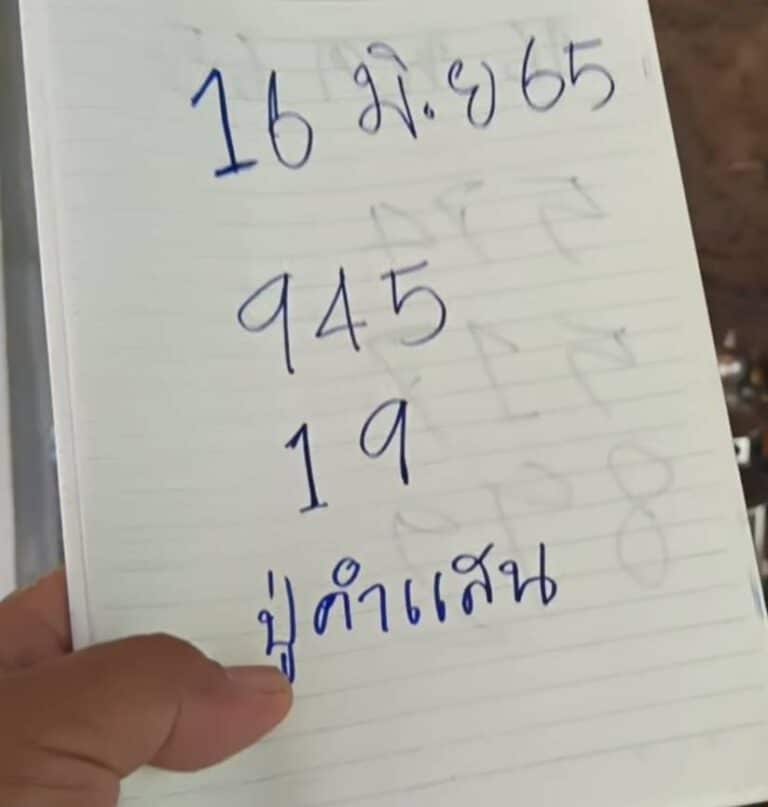 16 มิ.ย 65
945
19
ปู่คำแสน